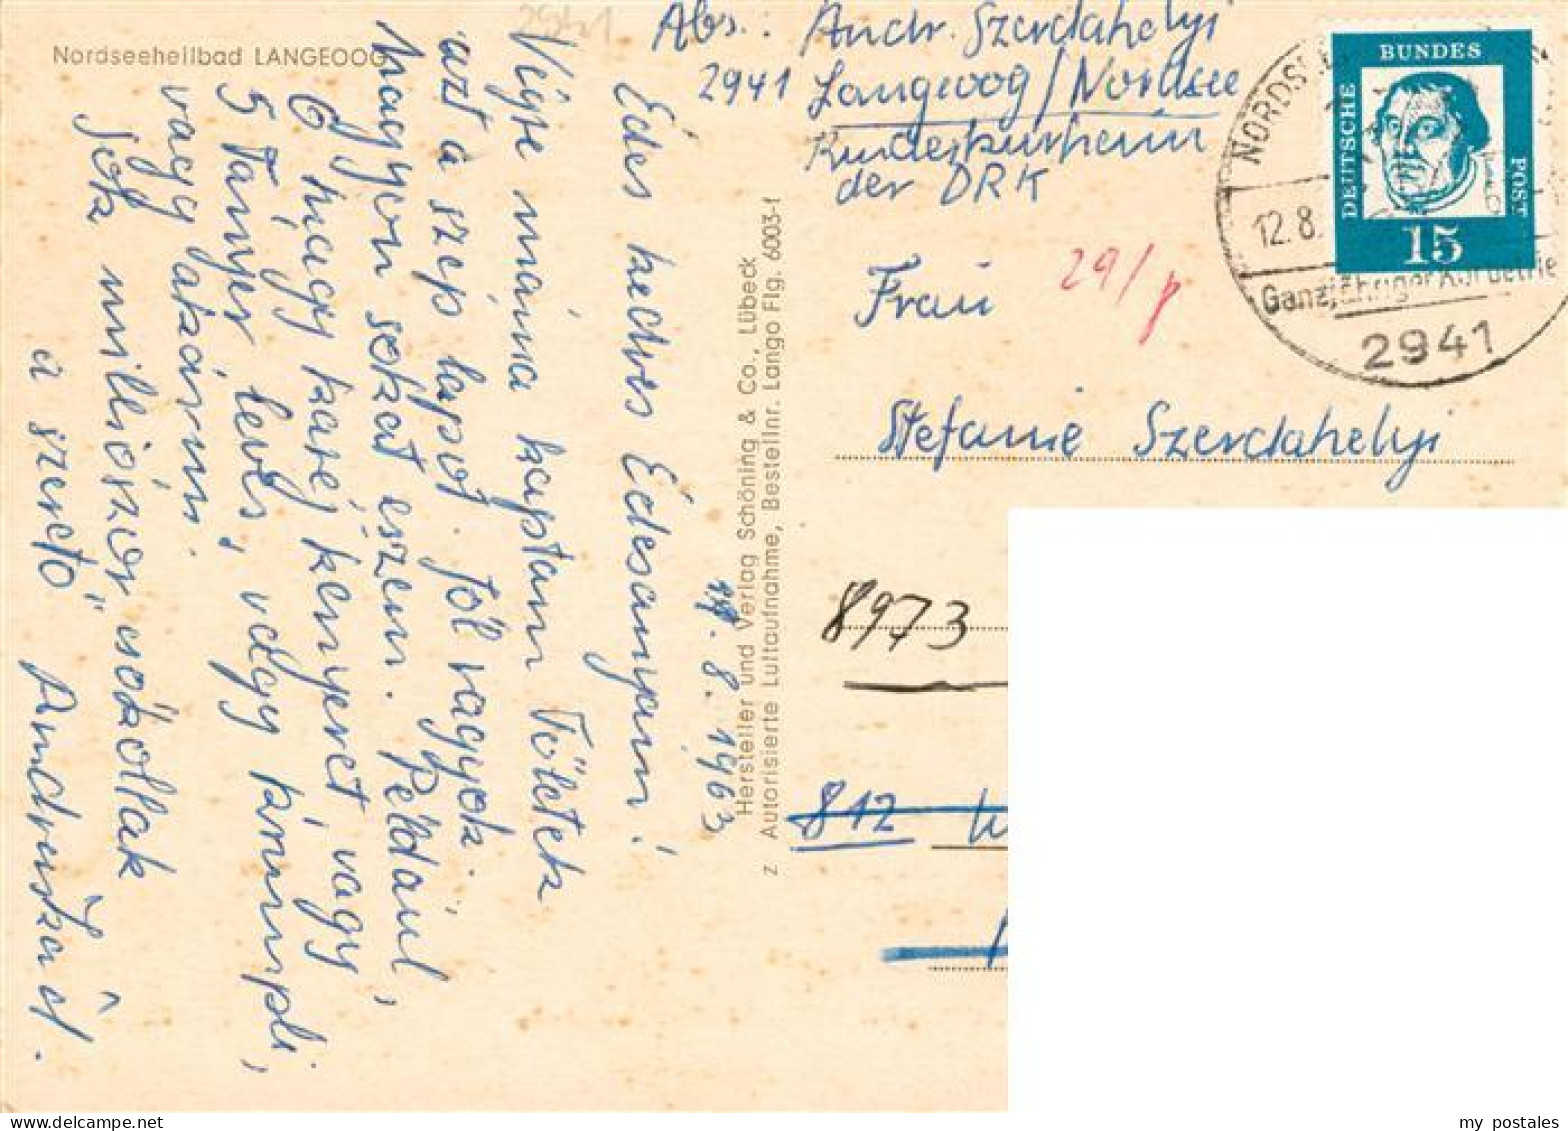 Nordseeheilbad LANGEOOG
2941
Abs.: Andr. Szerdahelyi
2941 Langeoog/Nordsee
Kinderkurheim
der DRK
NORDS
12.8.
Ganzjähriger Kurbetrie
2941
DEUTSCHE
BUNDES
POST
15
29/
Frau
Stefanie Szerdahelyi
8973
812
Hersteller und Verlag Schöning & Co., Lübeck
Z Autorisierte Luftaufnahme, Bestellnr. Lango Flg. 6003-1
8. 1963
Édes kedves Édesanyám!
Végre máma kaptam Tőletek
azt a szép lapot. Jól vagyok.
Nagyon sokat eszem. Például,
6 nagy karéj kenyeret, vagy
5 Tányér leves, vagy krumpli,
vagy akármi.
Sok milliószor csókollak
a szerető Andruska
my postales